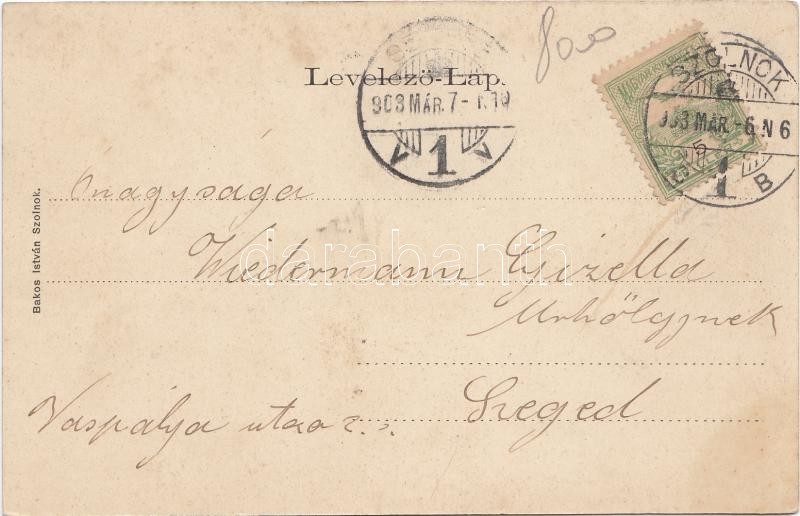 8000
Levelező-Lap.
903 MÁR. 7-
1
SZOLNOK
903 MÁR.-6 N 6
1 B
Bakos István Szolnok.
Őnagysága
Wiedermann Gizella
Urhölgynek
Vaspálya utca 2.
Szeged
darabanth